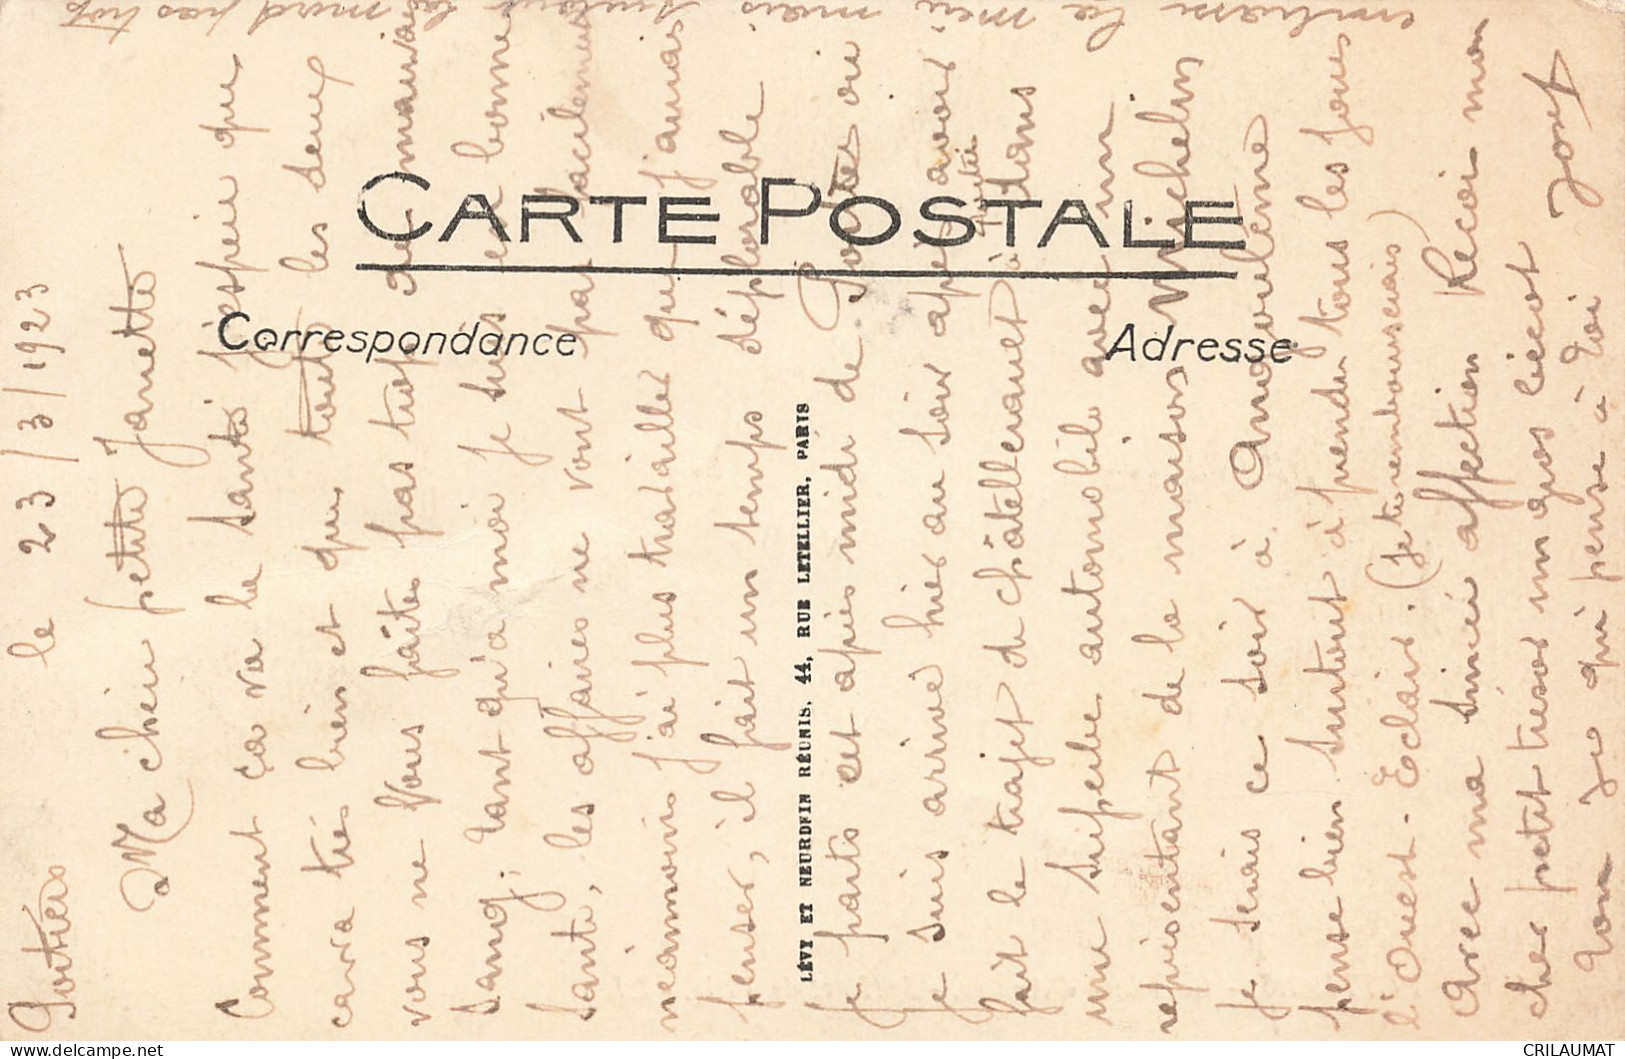 CARTE POSTALE
Correspondance
Adresse
LÉVY ET NEURDEIN RÉUNIS, 44, RUE LETELLIER, PARIS
Poitiers le 23/3/1923
Ma chère petite Janette
Comment ça va la santé j'espère que
cava très bien et que tout les deux
vous ne vous faites pas trop de mauvais
sang, tant qu'a moi je suis en bonne
santé, les affaires ne vont pas facilement
néanmoins j'ai plus travailler que j'aurais
penser, il fait un temps déplorable
je parts cet après midi de Poitiers ou
je suis arrivé hier au soir après avoir
fait le trajet de Châtellerault à Poitiers dans
une superbe automobile avec un
représentant de la maison Michelin
je serais ce soir à Angoulème
pense bien surtout à prendre tous les jours
l'Ouest-Eclair. (je te rembourserais)
Avec ma sincère affection Recoi mon
cher petit trésor un gros bécot
Ton Jo qui pense à toi
Josef
embrasse la mèr mais surtout la mord pas trop
CRILAUMAT